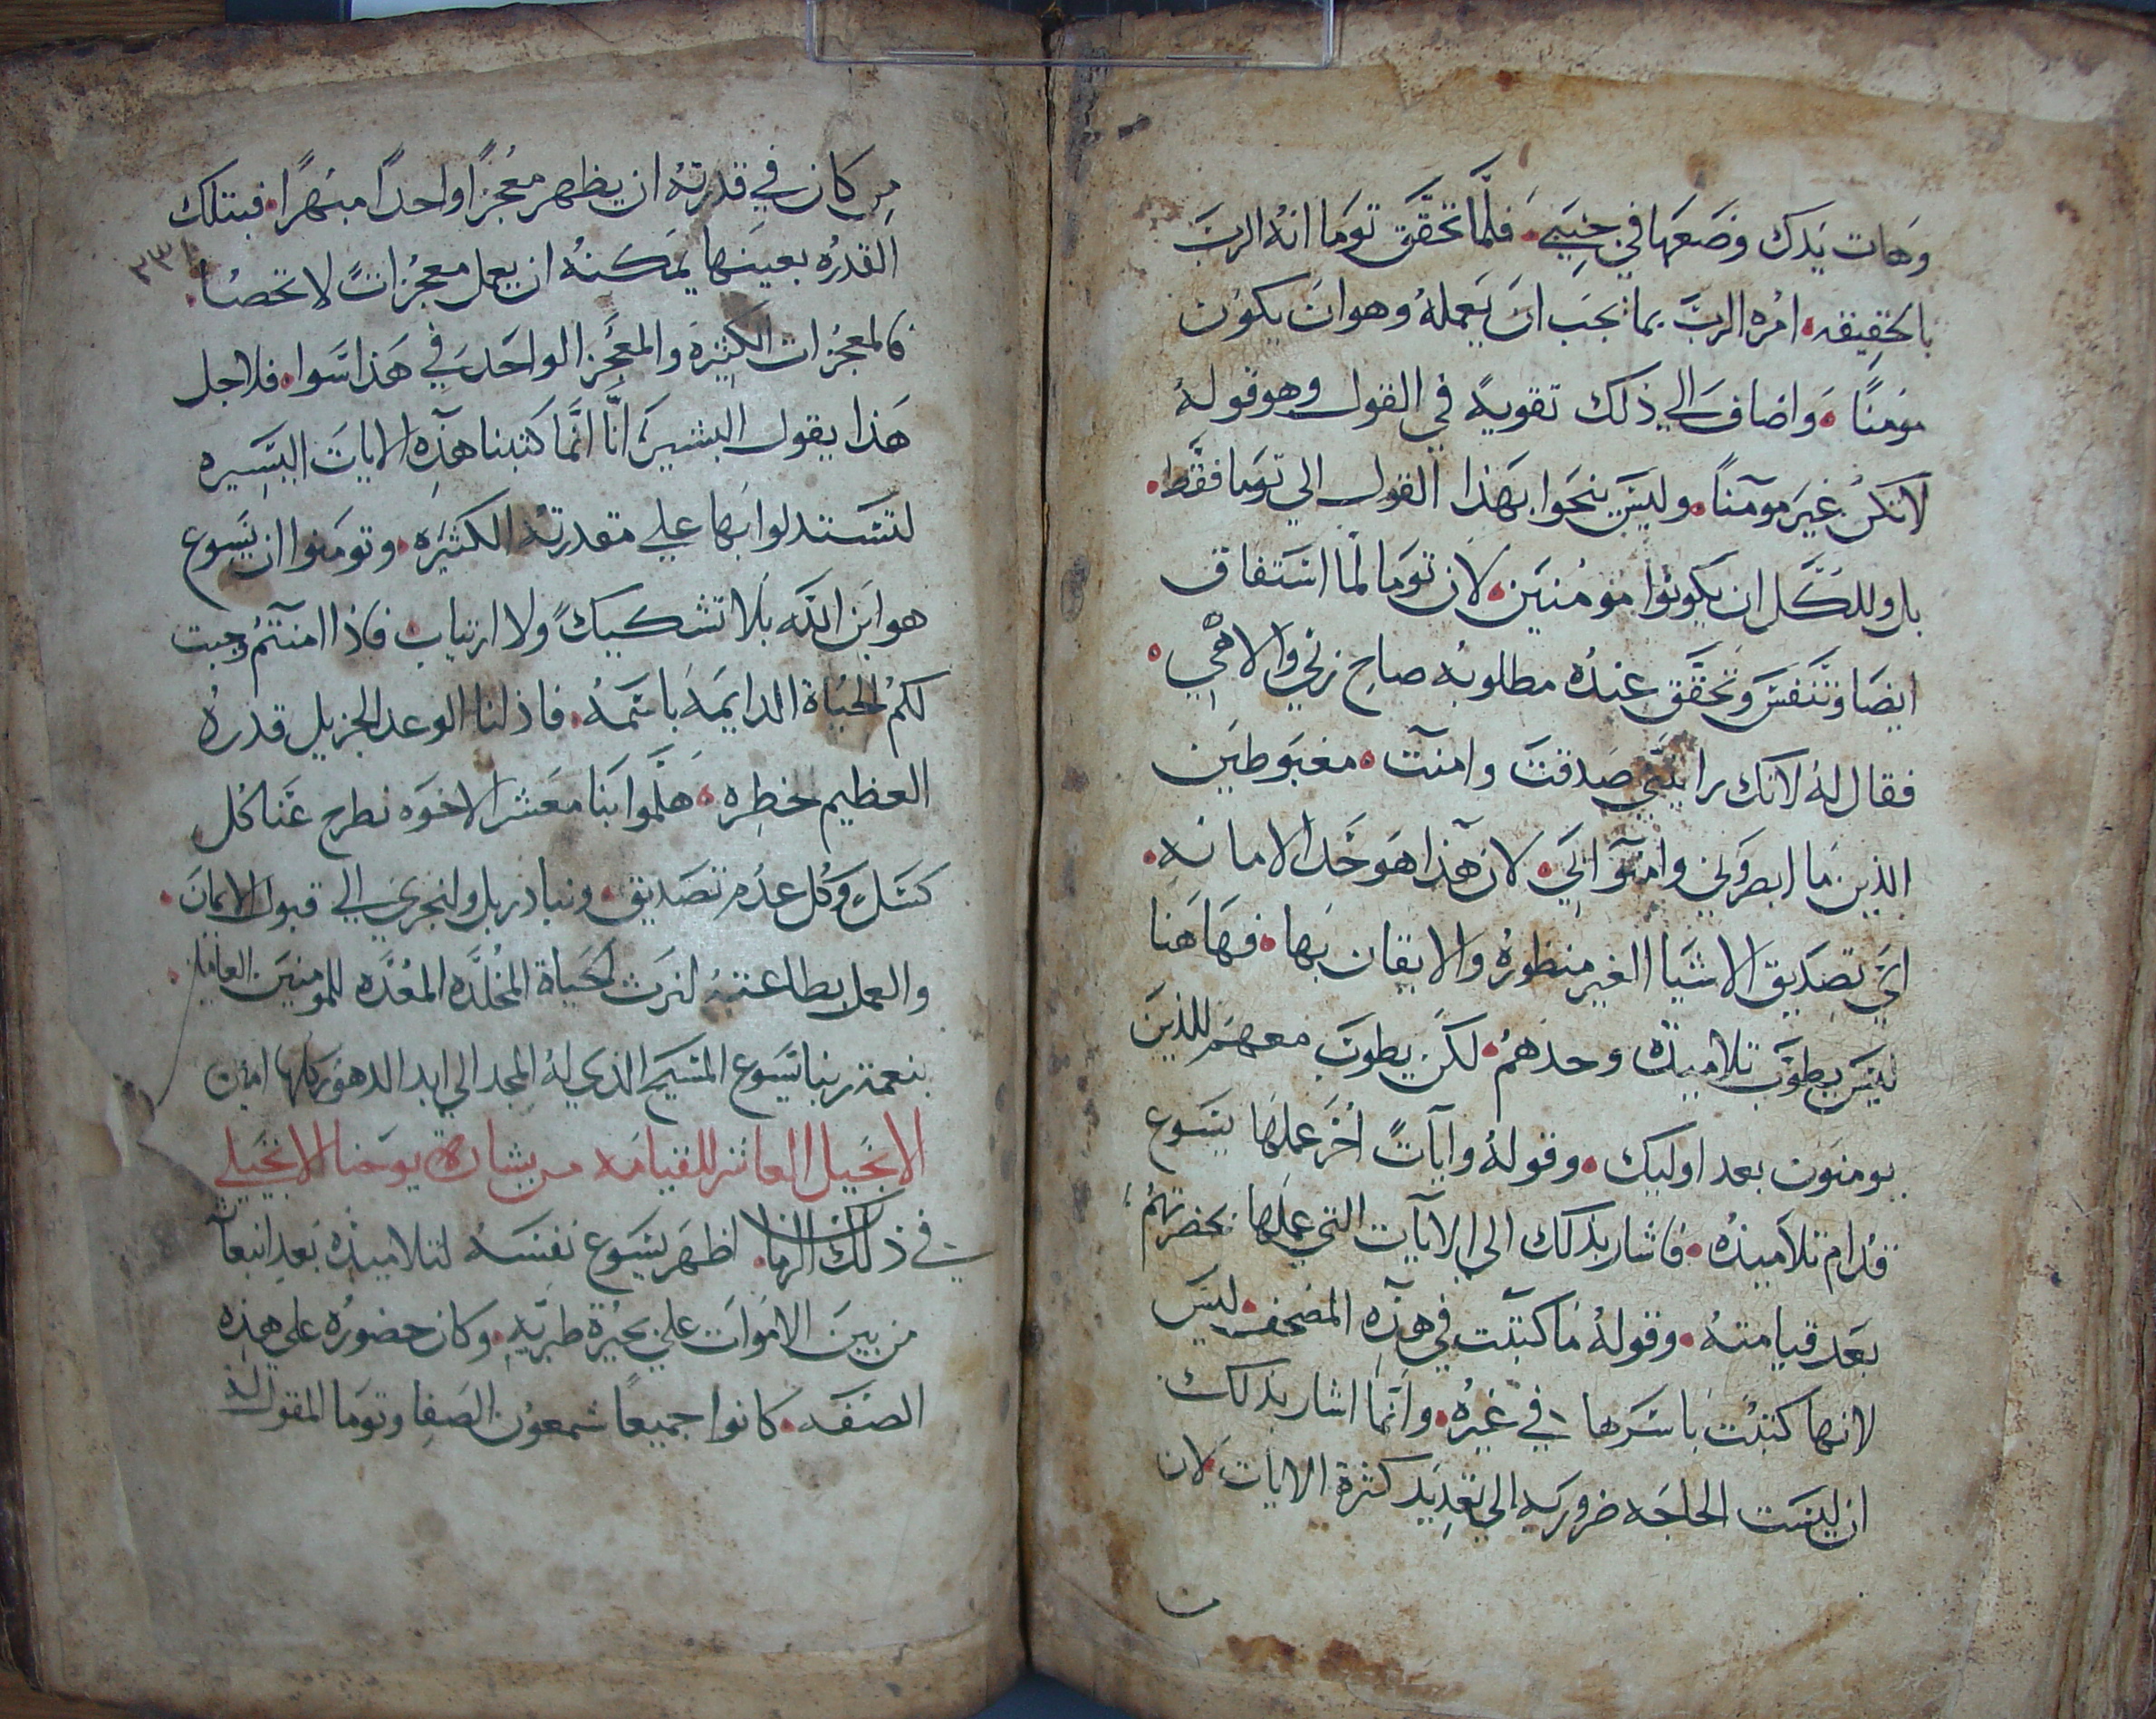 وهات يدك وضعها في جنبي. فلما تحقق توما انه الرب
بالحقيقه. امره الرب بما يجب ان يعمله وهو ان يكون
مومنًا. واضاف الي ذلك تقوية في القول وهو قوله
لا تكن غير مومنًا. وليس ينحوا بهذا القول الي توما فقط.
بل وللكل ان يكونوا مومنين. لان توما لما استفاق
ايضا وتنفس وتحقق عنده مطلوبه صاح ربي والاهي.
فقال له لانك رايتني صدقت وامنت. مغبوطين
الذين ما ابصروني وامنوا بي. لان هذا هو حد الامانه.
اي تصديق الاشيا الغير منظوره والايقان بها. فهاهنا
ليس يطوب تلاميذه وحدهم. لكن يطوب معهم للذين
يومنون بعد اوليك. وقوله وايات اخر عملها يسوع
قدام تلاميذه. فاشار بذلك الي الايات التي عملها بحضرتهم
بعد قيامته. وقوله ما كتبت في هذه المصحف. ليس
لانها كتبت باسرها في غيره. وانما اشار بذلك
ان ليست الحاجه ضروريه الي تعديد كثرة الايات لان
من كان في قدرته ان يظهر معجزًا واحدًا مبهرًا. فبتلك
٣٣١
القدره بعينها يمكنه ان يعمل معجزات لا تحصا.
فالمعجزات الكثيرة والمعجز الواحد في هذا سوا. فلاجل
هذا يقول البشير انا انما كتبنا هذه الايات اليسيره
لتستدلوا بها علي مقدرته الكثيره. وتومنوا ان يسوع
هو ابن الله بلا تشكيك ولا ارتياب. فاذا امنتم وجبت
لكم الحياة الدايمه باسمه. فاذ لنا الوعد الجزيل قدره
العظيم خطره. هلموا بنا معشر الاخوه نطرح عنا كل
كسل وكل عدم تصديق. ونبادر بل ولنجري الي قبول الايمان.
والعمل بطاعته لنرث الحياة المخلده المعده للمومنين العاملين.
بنعمة ربنا يسوع المسيح الذي له المجد الي ابد الدهور كلها امين
الانجيل العاشر للقيامه من بشارة يوحنا الانجيلي
في ذلك الزمان. اظهر يسوع نفسه لتلاميذه بعد انبعاثه
من بين الاموات علي بحيرة طبريه. وكان حضوره علي هذه
الصفه. كانوا جميعًا شمعون الصفا وتوما المقول له